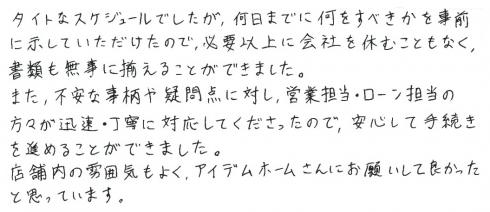 タイトなスケジュールでしたが,何日までに何をすべきかを事前
に示していただけたので,必要以上に会社を休むこともなく,
書類も無事に揃えることができました。
また,不安な事柄や疑問点に対し,営業担当・ローン担当の
方々が迅速・丁寧に対応してくださったので,安心して手続き
を進めることができました。
店舗内の雰囲気もよく,アイデムホームさんにお願いして良かった
と思っています。